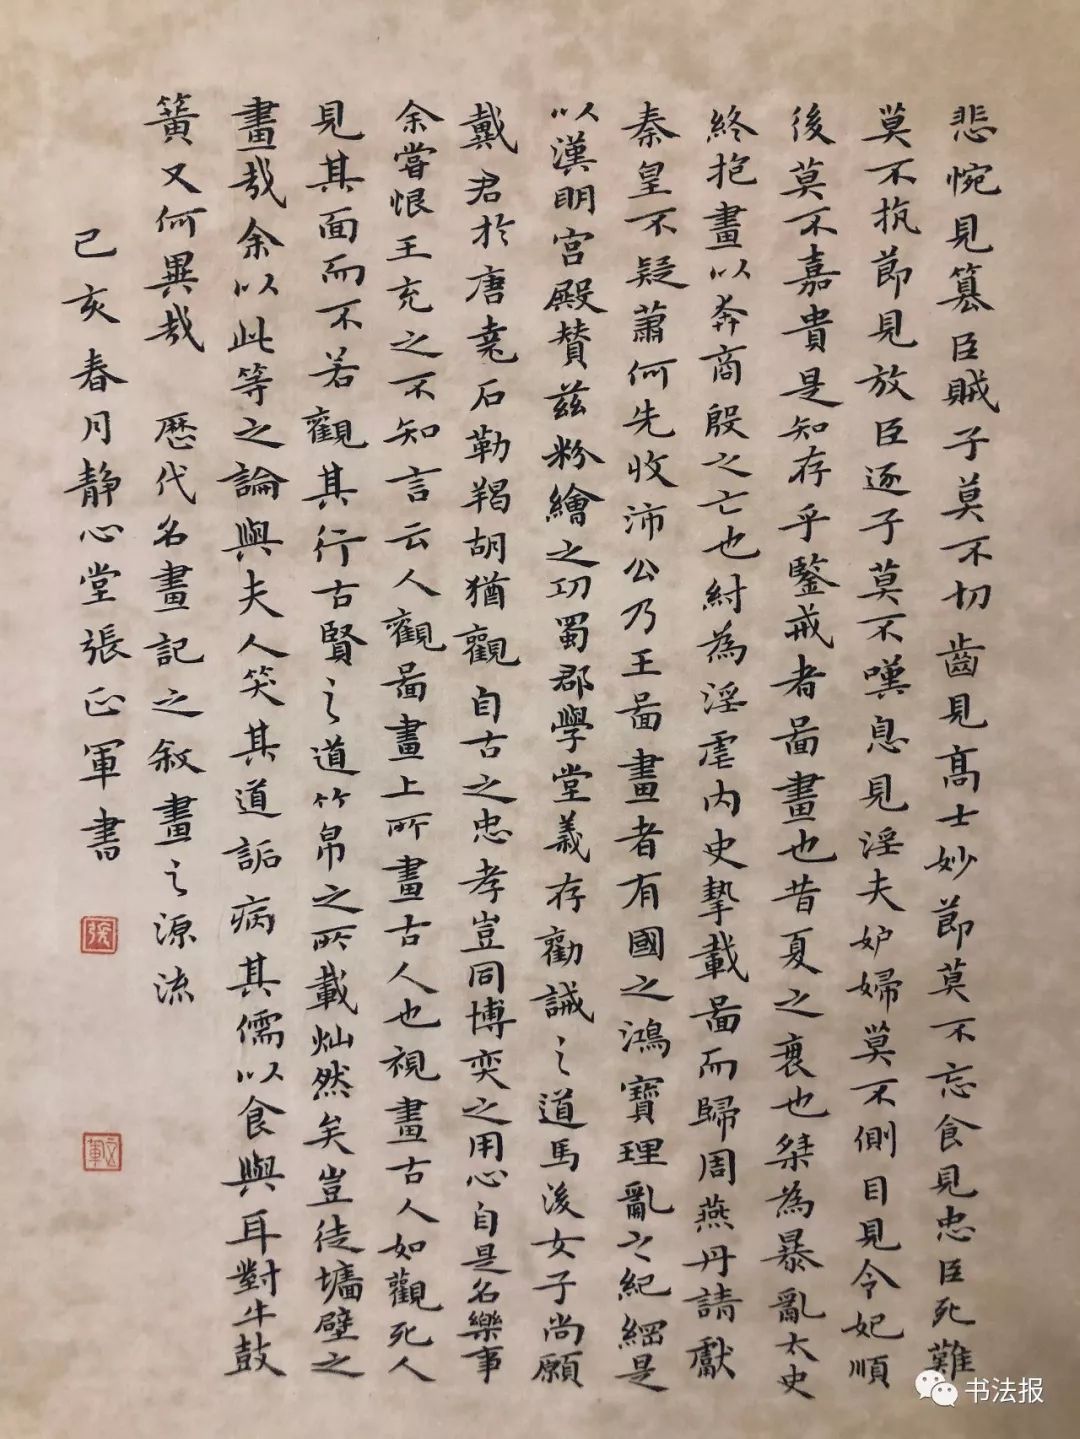 悲惋見篡臣賊子莫不切齒見高士妙節莫不忘食見忠臣死難
莫不抗節見放臣逐子莫不嘆息見淫夫妒婦莫不側目見令妃順
後莫不嘉貴是知存乎鑒戒者啚畫也昔夏之衰也桀為暴亂太史
終抱畫以奔商殷之亡也紂為淫虐内史摯載啚而歸周燕丹請獻
秦皇不疑蕭何先收沛公乃王啚畫者有國之鴻寶理亂之紀綱是
以漢明宮殿贊茲粉繪之功蜀郡學堂義存勸誡之道馬後女子尚願
戴君於唐堯石勒羯胡猶觀自古之忠孝豈同博奕之用心自是名樂事
余嘗恨王充之不知言云人觀啚畫上所畫古人也視畫古人如觀死人
見其面而不若觀其行古賢之道竹帛之所載灿然矣豈徒墻壁之
畫哉余以此等之論與夫人笑其道詬病其儒以食與耳對牛鼓
簧又何異哉 歷代名畫記之敘畫之源流
己亥春月靜心堂張正軍書
張
正軍
书法报